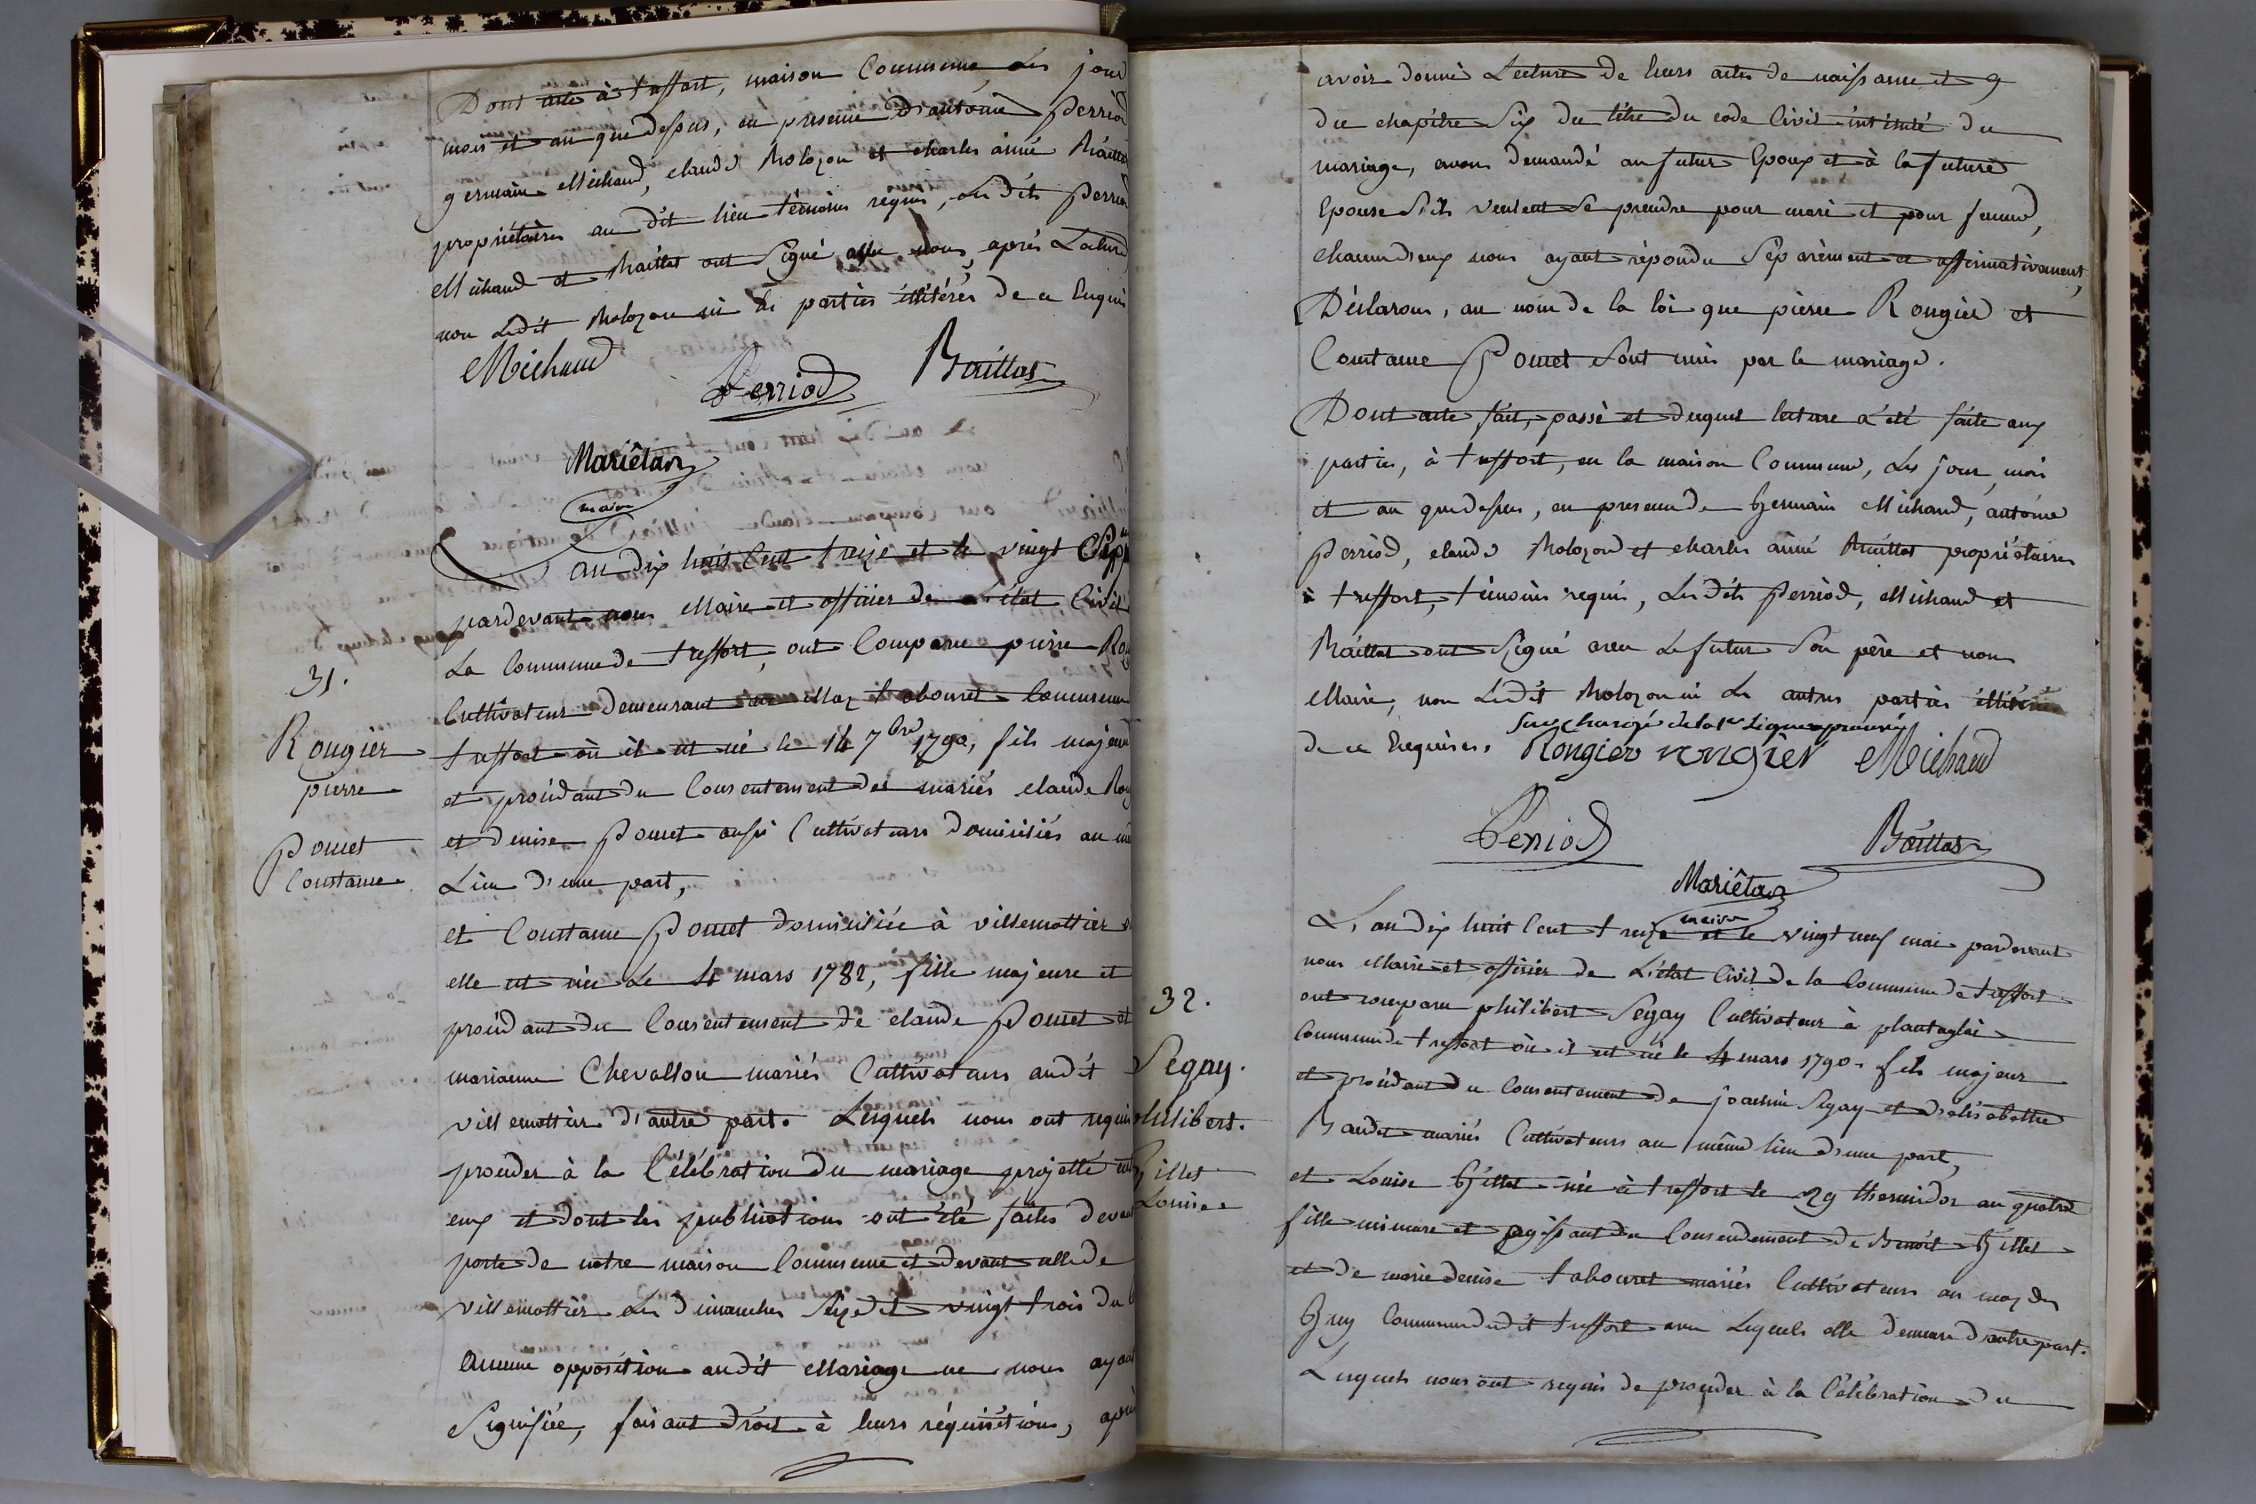 Dont acte à treffort, maison Commune les jour
mois et an que dessus, en presence d'antoine perriod
germain Michaud, claude Molozon et charles aimé Maillat
propriétaires au dit lieu témoins requis, les dits perriod
Michaud et Maillat ont Signé avec nous, après Lecture
non Ledit Molozon ni les parties illitérés de ce Enquis
Michaud
Perriod
Maillat
Mariétan
maire
L'an dix huit Cent treize et le vingt Sept
pardevant nous Maire et officier de L'état Civil
La Commune de treffort, ont Comparu pierre Rou
Cultivateur demeurant au Maz tabouret Commune
treffort où il est né le 14 7bre 1790, fils majeur
et procédant du Consentement des mariés claude Rou
et denise Pomet aussi Cultivateurs domiciliés au mê
Lieu d'une part,
31.
Rougier
pierre
Pomet
Constance
et Constance Pomet domiciliée à villemottier
elle est née Le 4 mars 1782, fille majeure et
procédant du Consentement de claude Pomet et
marianne Chevallon mariés Cultivateurs audit
villemottier d'autre part. Lesquels nous ont requis
proceder à la Célébration du mariage projetté ent
eux et dont les publications ont été faites devant
porte de notre maison Commune et devant celle de
villemottier les dimanches Seize et vingt trois du C
Aucune opposition audit Mariage ne nous ayant
Signifiée, faisant droit à leurs réquisitions, après
avoir donné Lecture de leurs actes de naissance et
du chapitre Six du titre du code Civil intitulé du
mariage, avons demandé au futur Epoux et à la future
Epouse S'ils veulent Se prendre pour mari et pour femme,
chacun d'eux nous ayant répondu Séparément et affirmativement,
Déclarons, au nom de la loi que pierre Rougier et
Constance Pomet Sont unis par le mariage.
Dont acte fait, passé et duquel lecture a été faite aux
parties, à treffort, en la maison Commune, Les jour, mois
et an que dessus, en presence de Germain Michaud, antoine
perriod, claude Molozon et charles aimé Maillat propriétaires
à treffort, témoins requis, Les dits perriod, Michaud et
Maillat ont Signé avec Le futur Son père et nous
Maire, non Ledit Molozon ni Les autres parties illitérées
de ce Enquises.
Rougier rougier Michaud
Perriod
Maillat
Mariétan
maire
L'an dix huit Cent treize et le vingt neuf mai pardevant
nous Maire et officier de L'état Civil de la Commune de treffort
ont comparu philibert Segay Cultivateur à plantaglai
Commune de treffort où il est né le 4 mars 1790. fils majeur
et procédant du Consentement de joachim Segay et d'elisabethe
Baudet mariés Cultivateurs au même lieu d'une part,
32.
Segay.
philibert.
Gillet
Louise
et Louise Gillet née à treffort le 29 thermidor an quatre
fille mineure et agissant du Consendement de Benoit Gillet
et de marie denise tabouret mariés Cultivateurs au maz des
Guy Commune dudit treffort avec Lesquels elle demeure d'autre part.
Lesquels nous ont requis de proceder à la Célébration du